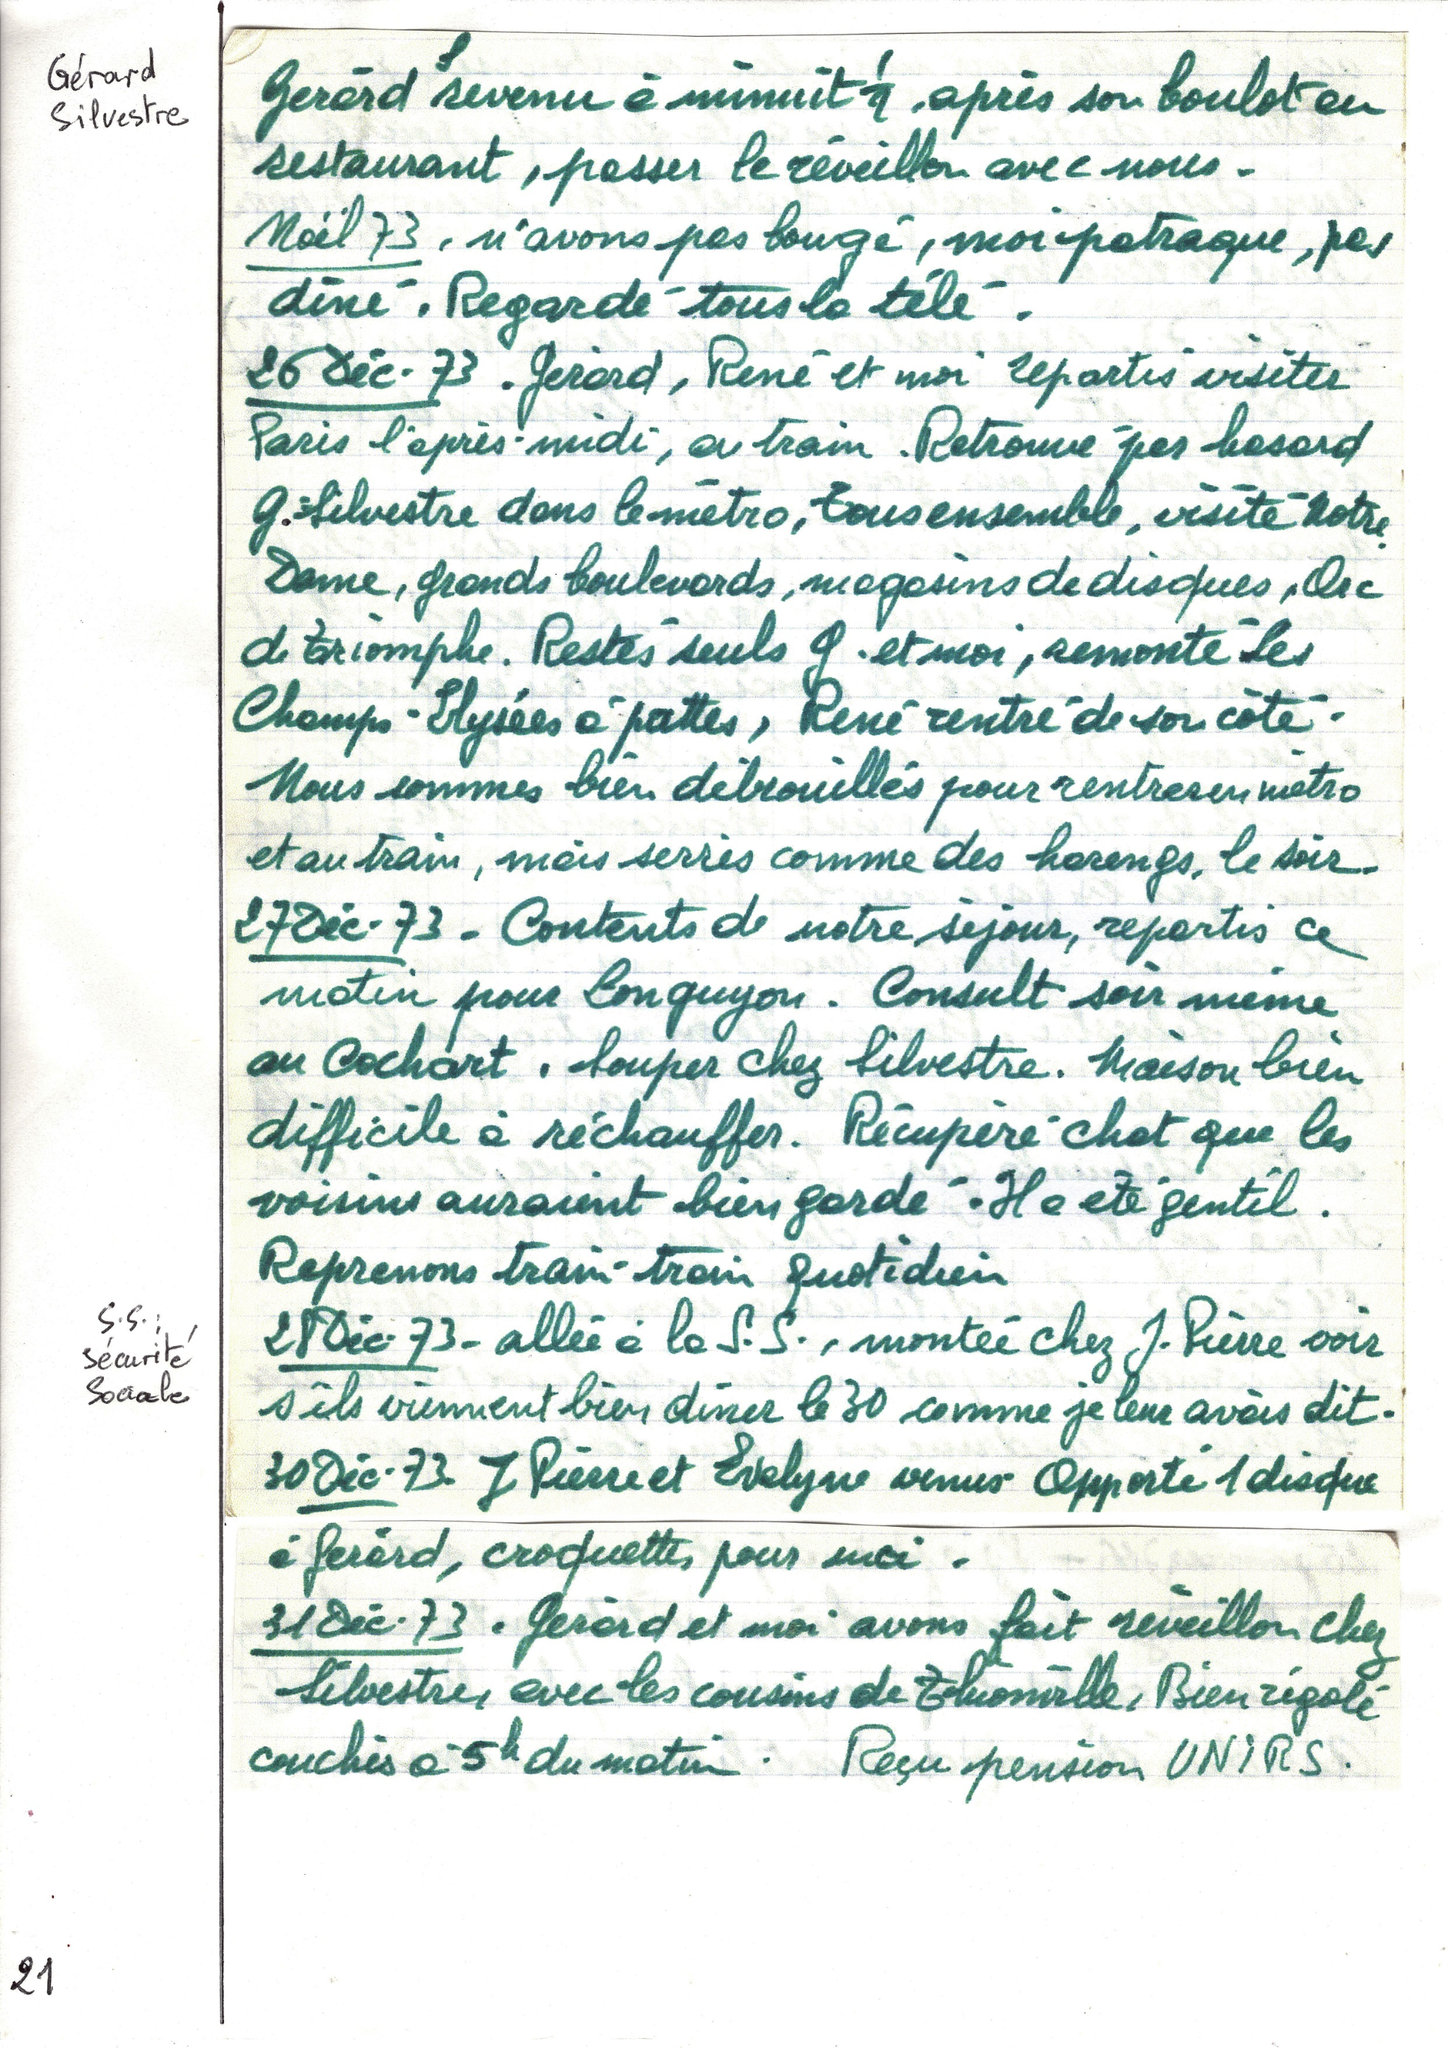 Gérard
Silvestre
Gérard S revenu à minuit ½, après son boulot au
restaurant, passer le réveillon avec nous.
Noël 73, n'avons pas bougé, moi patraque, pas
dîné. Regardé tous la télé.
26 Déc. 73. Gérard, René et moi repartis visiter
Paris l'après-midi, au train. Retrouvé par hasard
G. Silvestre dans le métro, tous ensemble, visité Notre
Dame, grands boulevards, magasins de disques, Arc
de Triomphe. Restés seuls G. et moi, remonté les
Champs-Elysées à pattes, René rentré de son côté.
Nous sommes bien débrouillés pour rentrer en métro
et au train, mais serrés comme des harengs, le soir.
27 Déc. 73. Contents de notre séjour, repartis ce
matin pour Longuyon. Consult soir même
au Cochart. Souper chez Silvestre. Maison bien
difficile à réchauffer. Récupéré chat que les
voisins auraient bien gardé. Il a été gentil.
Reprenons train-train quotidien
S.S.:
Sécurité
Sociale
28 Déc. 73 - allée à la S.S., montée chez J. Pierre voir
s'ils viennent bien dîner le 30 comme je leur avais dit.
30 Déc. 73. J Pierre et Evelyne venus. Apporté 1 disque
à Gérard, croquettes pour moi.
31 Déc. 73. Gérard et moi avons fait réveillon chez
Silvestre, avec les cousins de Thionville, Bien rigolé
couchés à 5h du matin. Reçu pension UNIRS.
21